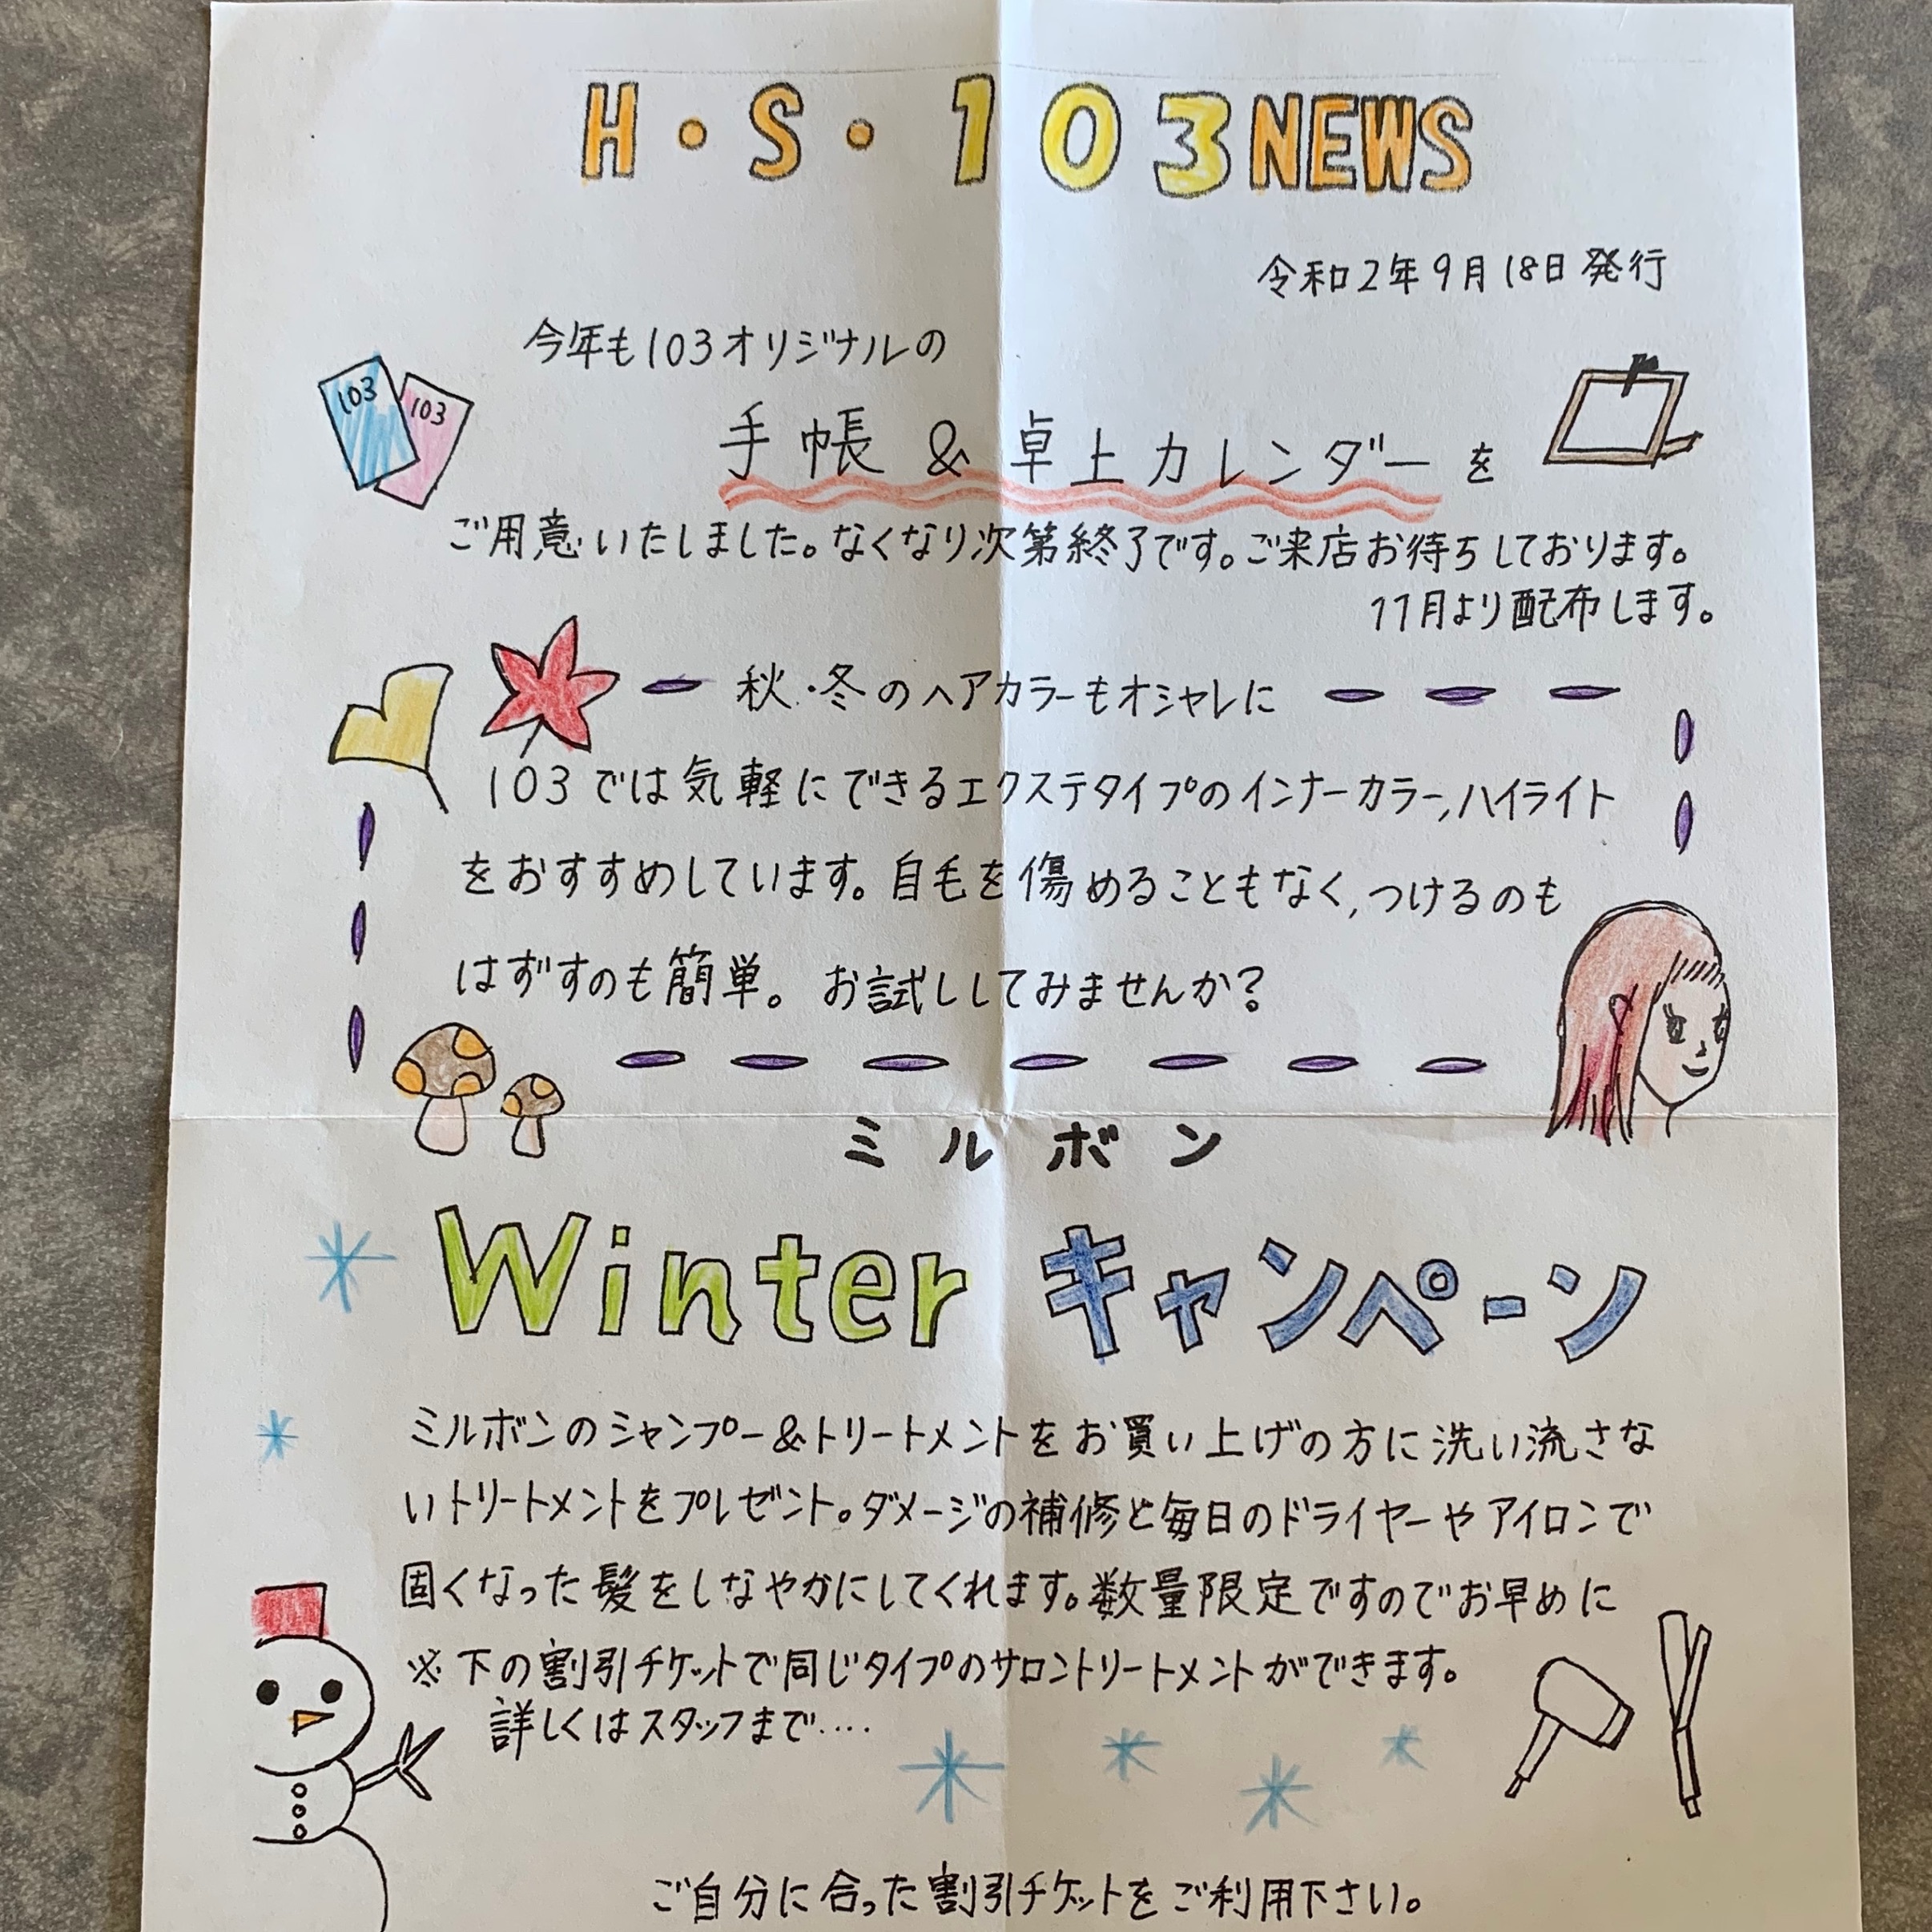 H・S・103NEWS
令和2年9月18日発行
今年も103オリジナルの
103
103
手帳&卓上カレンダーを
ご用意いたしました。なくなり次第終了です。ご来店お待ちしております。
11月より配布します。
秋・冬のヘアカラーもオシャレに
103では気軽にできるエクステタイプのインナーカラー,ハイライト
をおすすめしています。自毛を傷めることもなく,つけるのも
はずすのも簡単。お試ししてみませんか?
ミルボン
Winterキャンペーン
ミルボンのシャンプー&トリートメントをお買い上げの方に洗い流さな
いトリートメントをプレゼント。ダメージの補修と毎日のドライヤーやアイロンで
固くなった髪をしなやかにしてくれます。数量限定ですのでお早めに
※下の割引チケットで同じタイプのサロントリートメントができます。
詳しくはスタッフまで....
ご自分に合った割引チケットをご利用下さい。